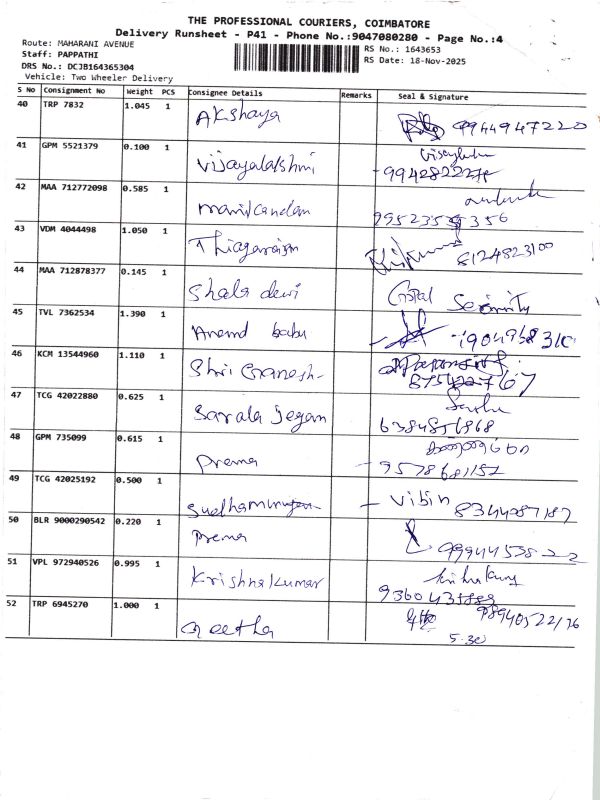 THE PROFESSIONAL COURIERS, COIMBATORE
Delivery Runsheet - P41 - Phone No.:9047080280 - Page No.:4
Route: MAHARANI AVENUE
Staff: PAPPATHI
DRS No.: DCJB164365304
Vehicle: Two Wheeler Delivery
RS No.: 1643653
RS Date: 18-Nov-2025
S No Consignment No Weight PCS Consignee Details Remarks Seal & Signature
40 TRP 7832 1.045 1 Akshaya 9944947220
41 GPM 5521379 0.100 1 Vijayalakshmi
42 MAA 712772098 0.585 1 manikandan
43 VDM 4044498 1.050 1 Thiagarajan 8124823100
44 MAA 712878377 0.145 1 Shala devi Serinity
45 TVL 7362534 1.390 1 Anand babu
46 KCM 13544960 1.110 1 Shri Ganesh
47 TCG 42022880 0.625 1 Sarala Jegan
48 GPM 735099 0.615 1 Prema
49 TCG 42025192 0.500 1 - Vibin 8344287187
50 BLR 9000290542 0.220 1 Prema
51 VPL 972940526 0.995 1 Krishna Kumar
52 TRP 6945270 1.000 1 Geetha
5.30